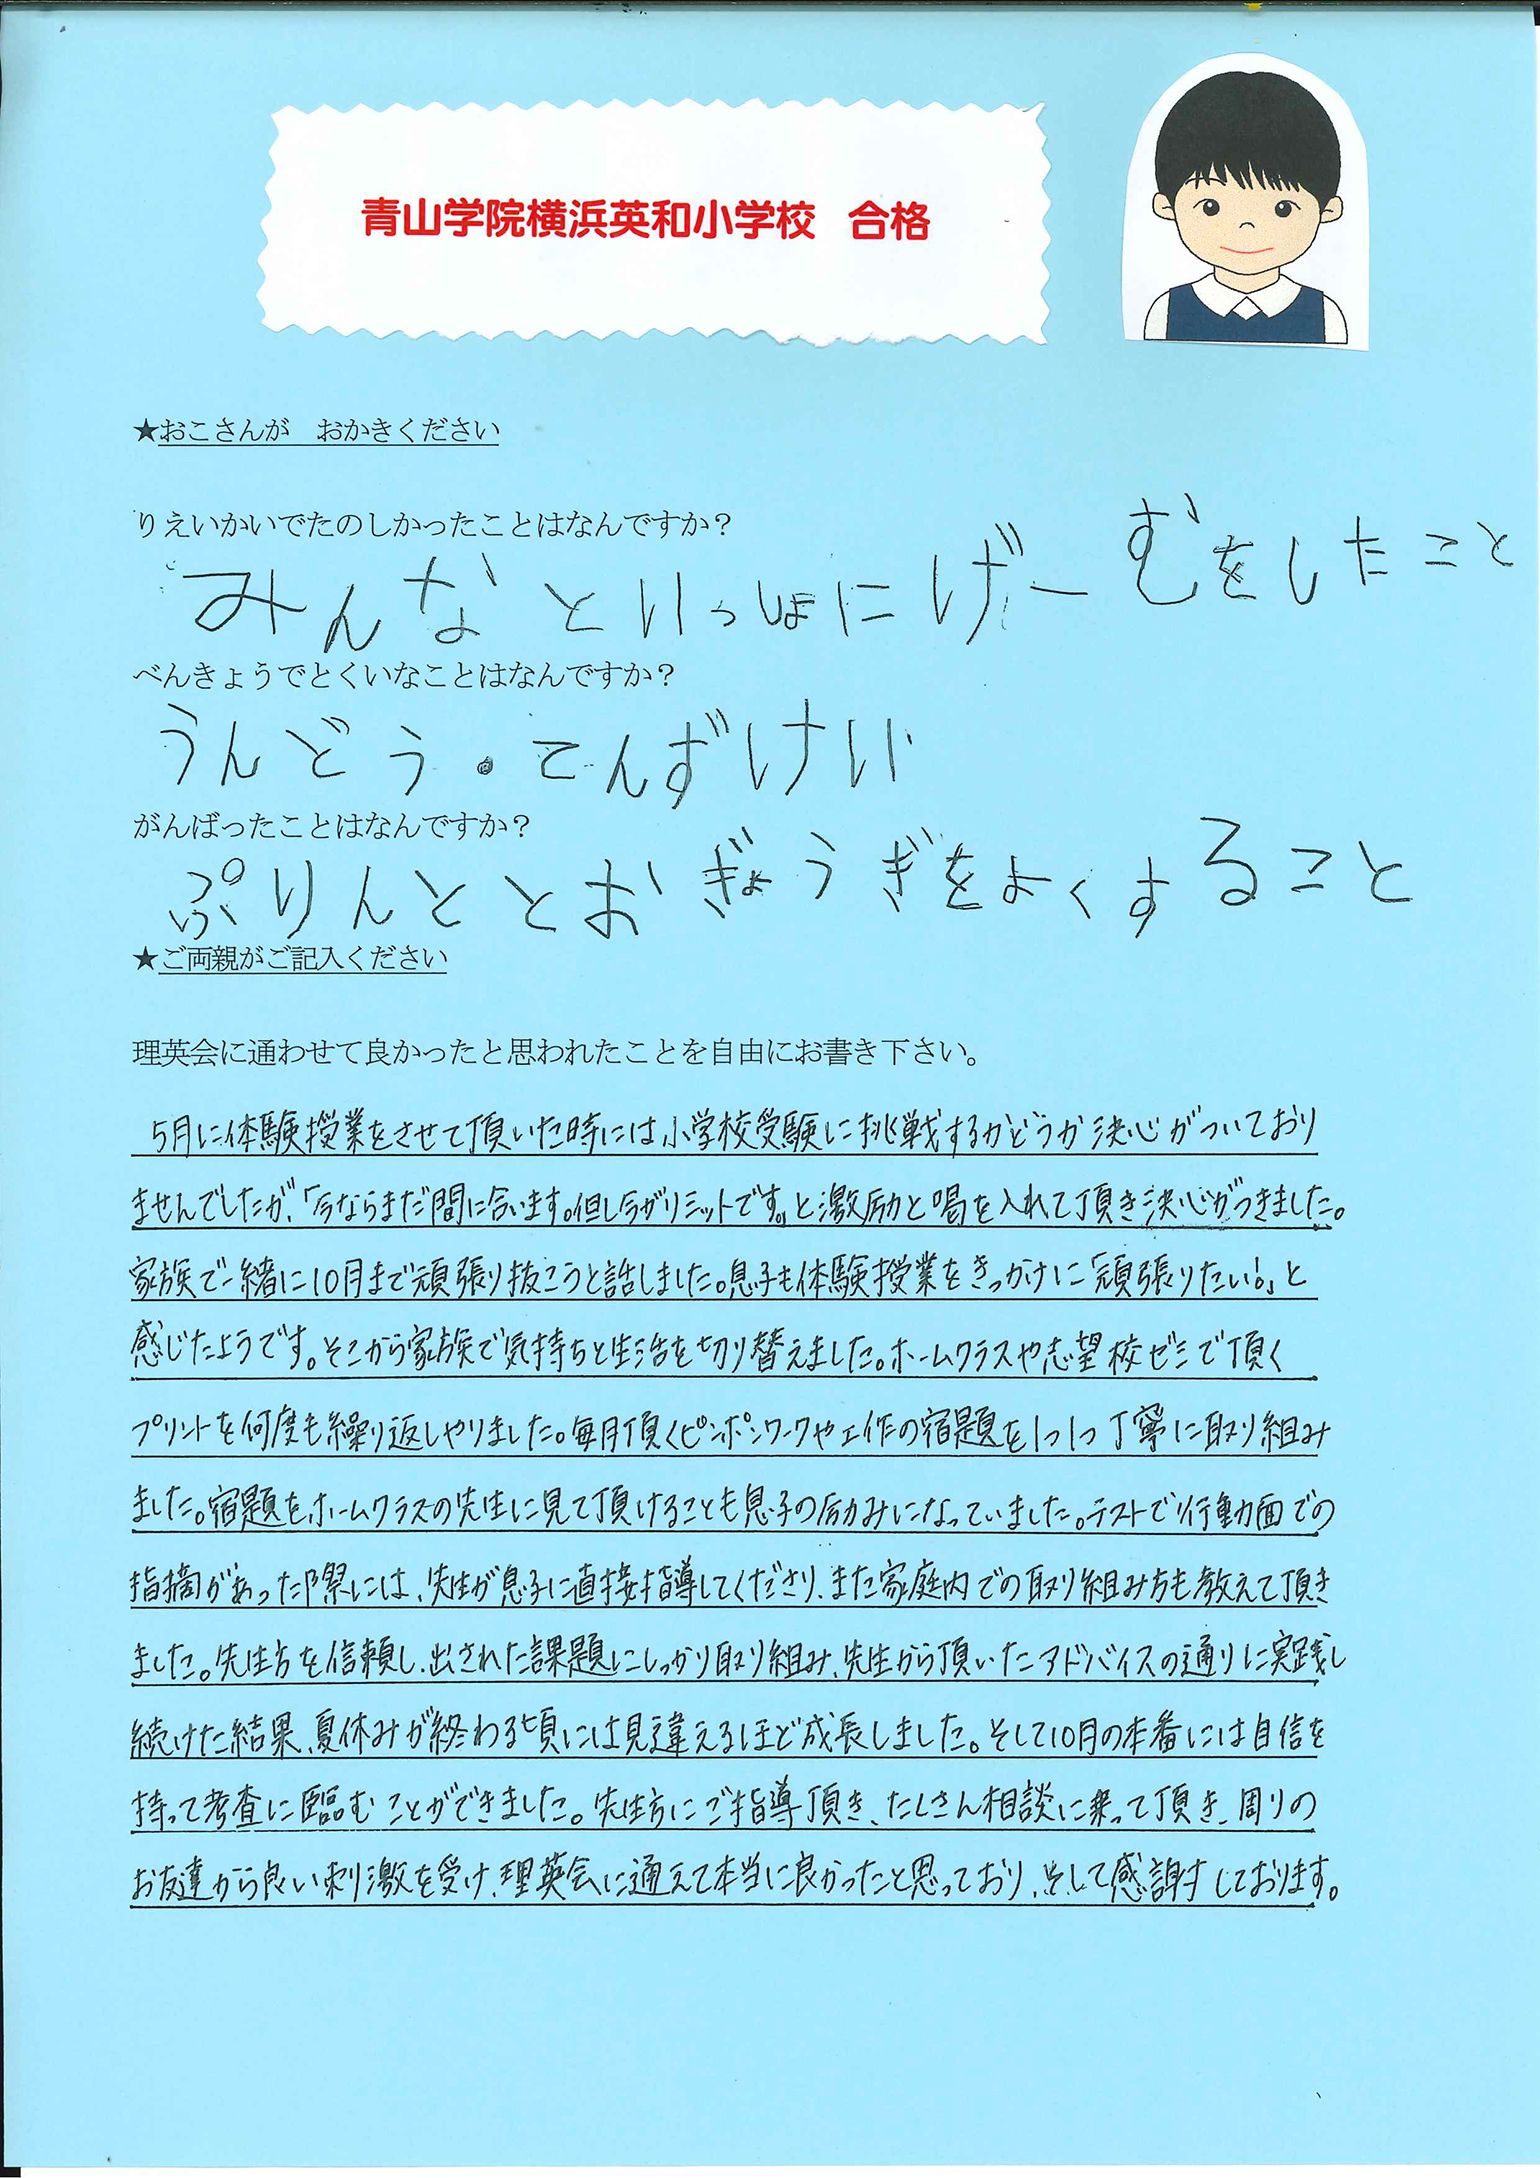 青山学院横浜英和小学校 合格
★おこさんが おかきください
りえいかいでたのしかったことはなんですか？
みんなといっしょにげーむをしたこと
べんきょうでとくいなことはなんですか？
うんどう・てんずけい
がんばったことはなんですか？
ぷりんととおぎょうぎをよくすること
★ご両親がご記入ください
理英会に通わせて良かったと思われたことを自由にお書き下さい。
5月に体験授業をさせて頂いた時には、小学校受験に挑戦するかどうか決心がついており
ませんでしたが、「今ならまだ間に合います。但し今がリミットです。」と激励と喝を入れて頂き決心がつきました。
家族で一緒に10月まで頑張り抜こうと話しました。息子も体験授業をきっかけに「頑張りたい!」と
感じたようです。そこから家族で気持ちと生活を切り替えました。ホームクラスや志望校ゼミで頂く
プリントを何度も繰り返しやりました。毎月頂くピンポンワークや工作の宿題を1つ1つ丁寧に取り組み
ました。宿題をホームクラスの先生に見て頂けることも息子の励みになっていました。テストで行動面での
指摘があった際には、先生が息子に直接指導してくださり、また家庭内での取り組み方も教えて頂き
ました。先生方を信頼し、出された課題にしっかり取り組み、先生から頂いたアドバイスの通りに実践し
続けた結果、夏休みが終わる頃には見違えるほど成長しました。そして10月の本番には自信を
持って考査に臨むことができました。先生方にご指導頂き、たくさん相談に乗って頂き、周りの
お友達から良い刺激を受け、理英会に通えて本当に良かったと思っており、そして感謝しております。